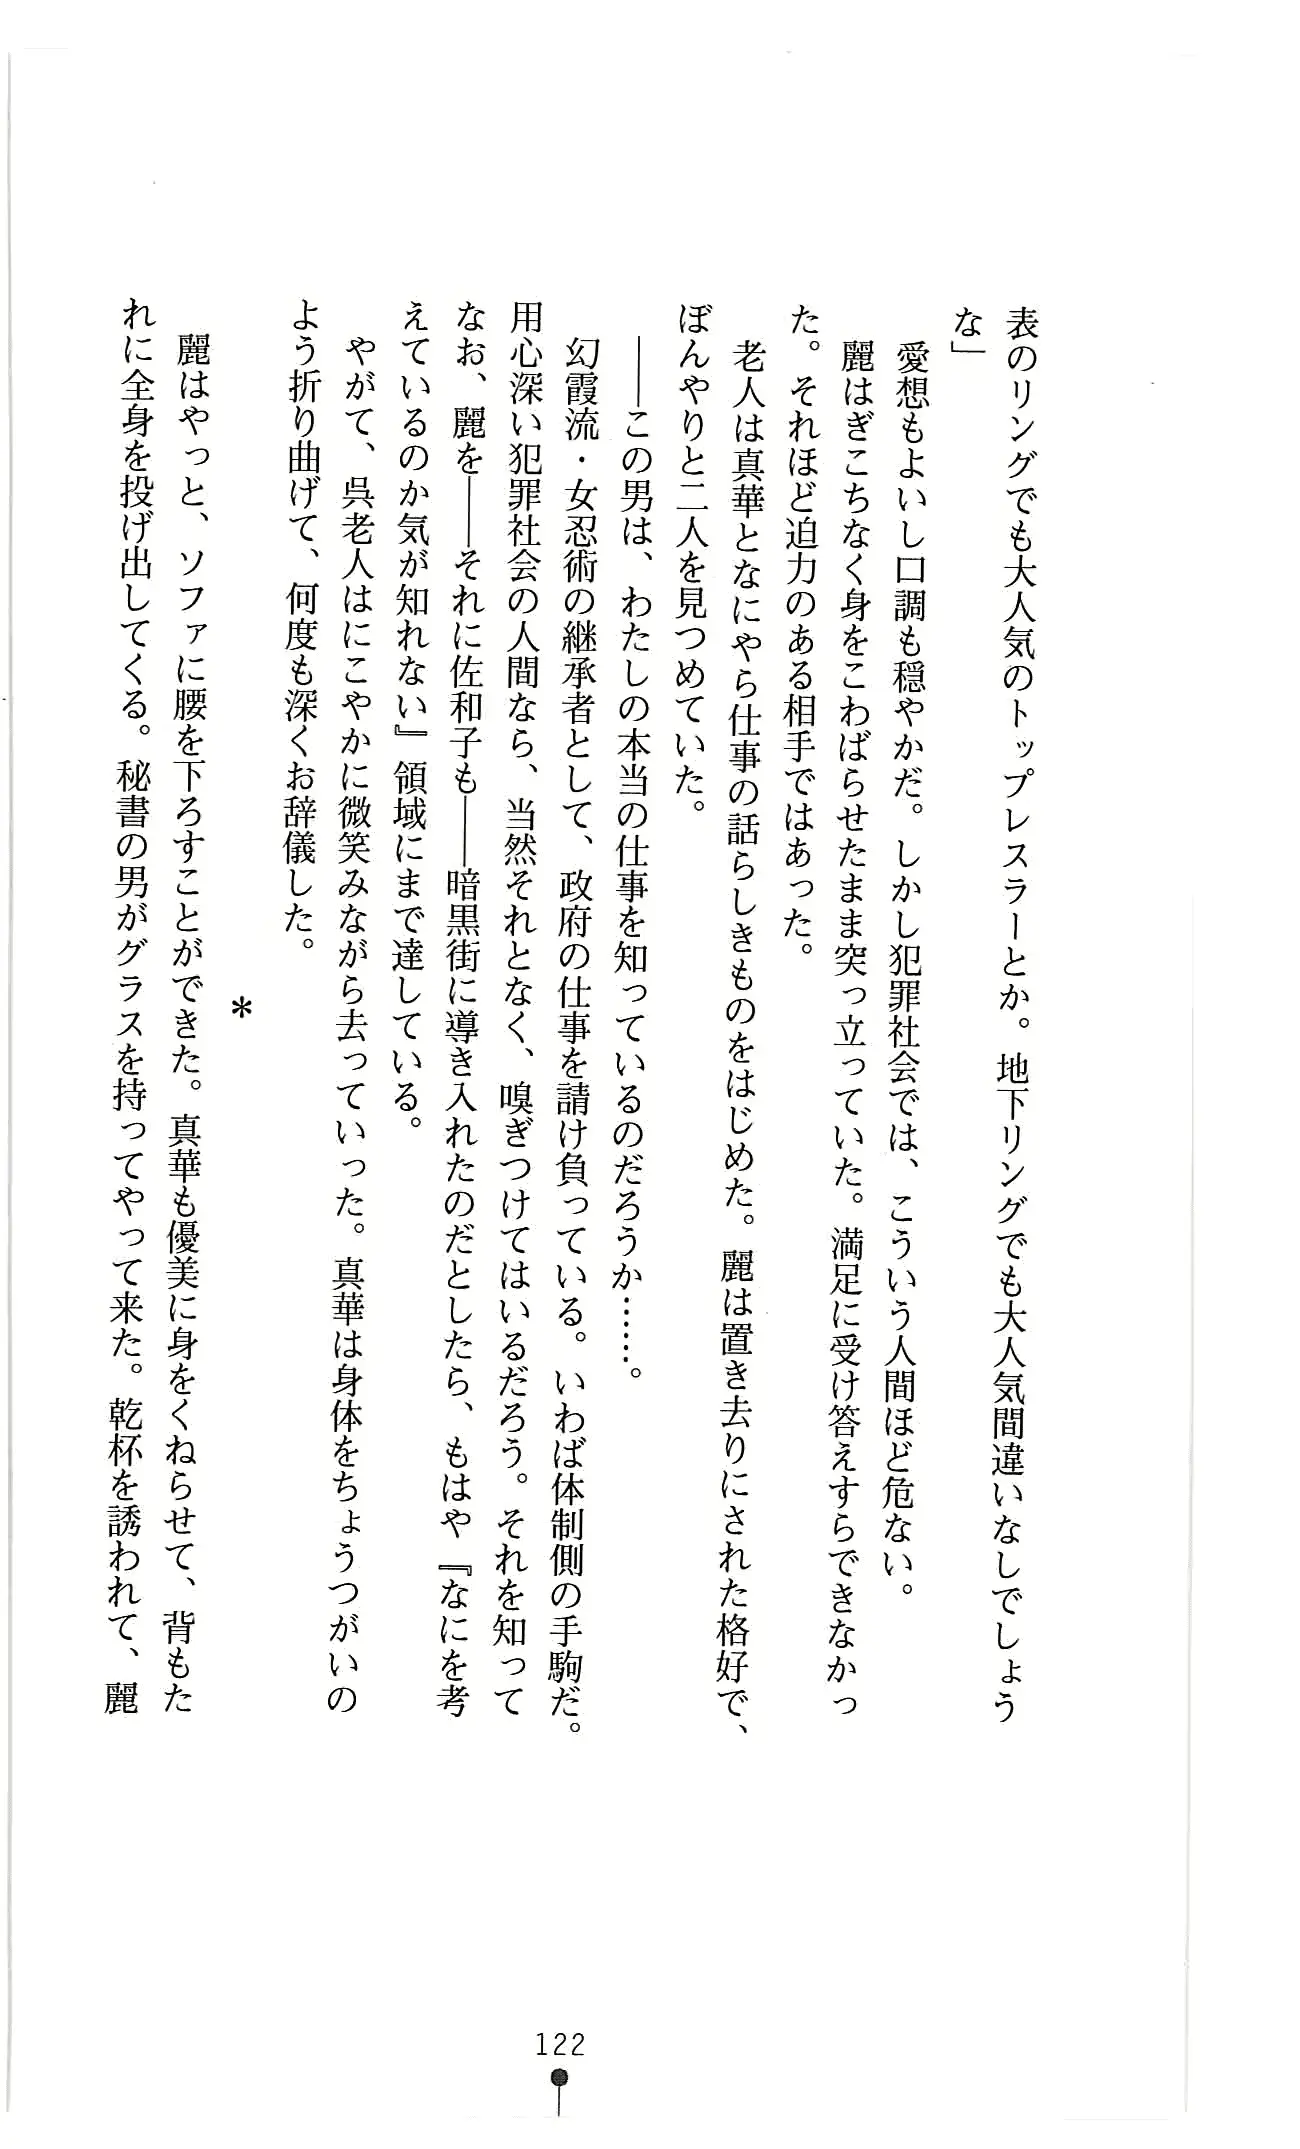 表のリングでも大人気のトップレスラーとか。地下リングでも大人気間違いなしでしょう
な」
愛想もよいし口調も穏やかだ。しかし犯罪社会では、こういう人間ほど危ない。
麗はぎこちなく身をこわばらせたまま突っ立っていた。満足に受け答えすらできなかっ
た。それほど迫力のある相手ではあった。
老人は真華となにやら仕事の話らしきものをはじめた。麗は置き去りにされた格好で、
ぼんやりと二人を見つめていた。
――この男は、わたしの本当の仕事を知っているのだろうか……。
幻霞流・女忍術の継承者として、政府の仕事を請け負っている。いわば体制側の手駒だ。
用心深い犯罪社会の人間なら、当然それとなく、嗅ぎつけてはいるだろう。それを知って
なお、麗を――それに佐和子も――暗黒街に導き入れたのだとしたら、もはや『なにを考
えているのか気が知れない』領域にまで達している。
やがて、呉老人はにこやかに微笑みながら去っていった。真華は身体をちょうつがいの
よう折り曲げて、何度も深くお辞儀した。
＊
麗はやっと、ソファに腰を下ろすことができた。真華も優美に身をくねらせて、背もた
れに全身を投げ出してくる。秘書の男がグラスを持ってやって来た。乾杯を誘われて、麗
122